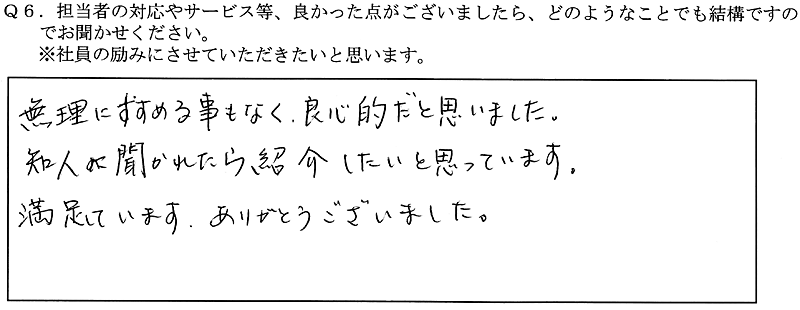 Q6．担当者の対応やサービス等、良かった点がございましたら、どのようなことでも結構ですの
でお聞かせください。
※社員の励みにさせていただきたいと思います。
無理にすすめる事もなく、良心的だと思いました。
知人に聞かれたら、紹介したいと思っています。
満足しています。ありがとうございました。